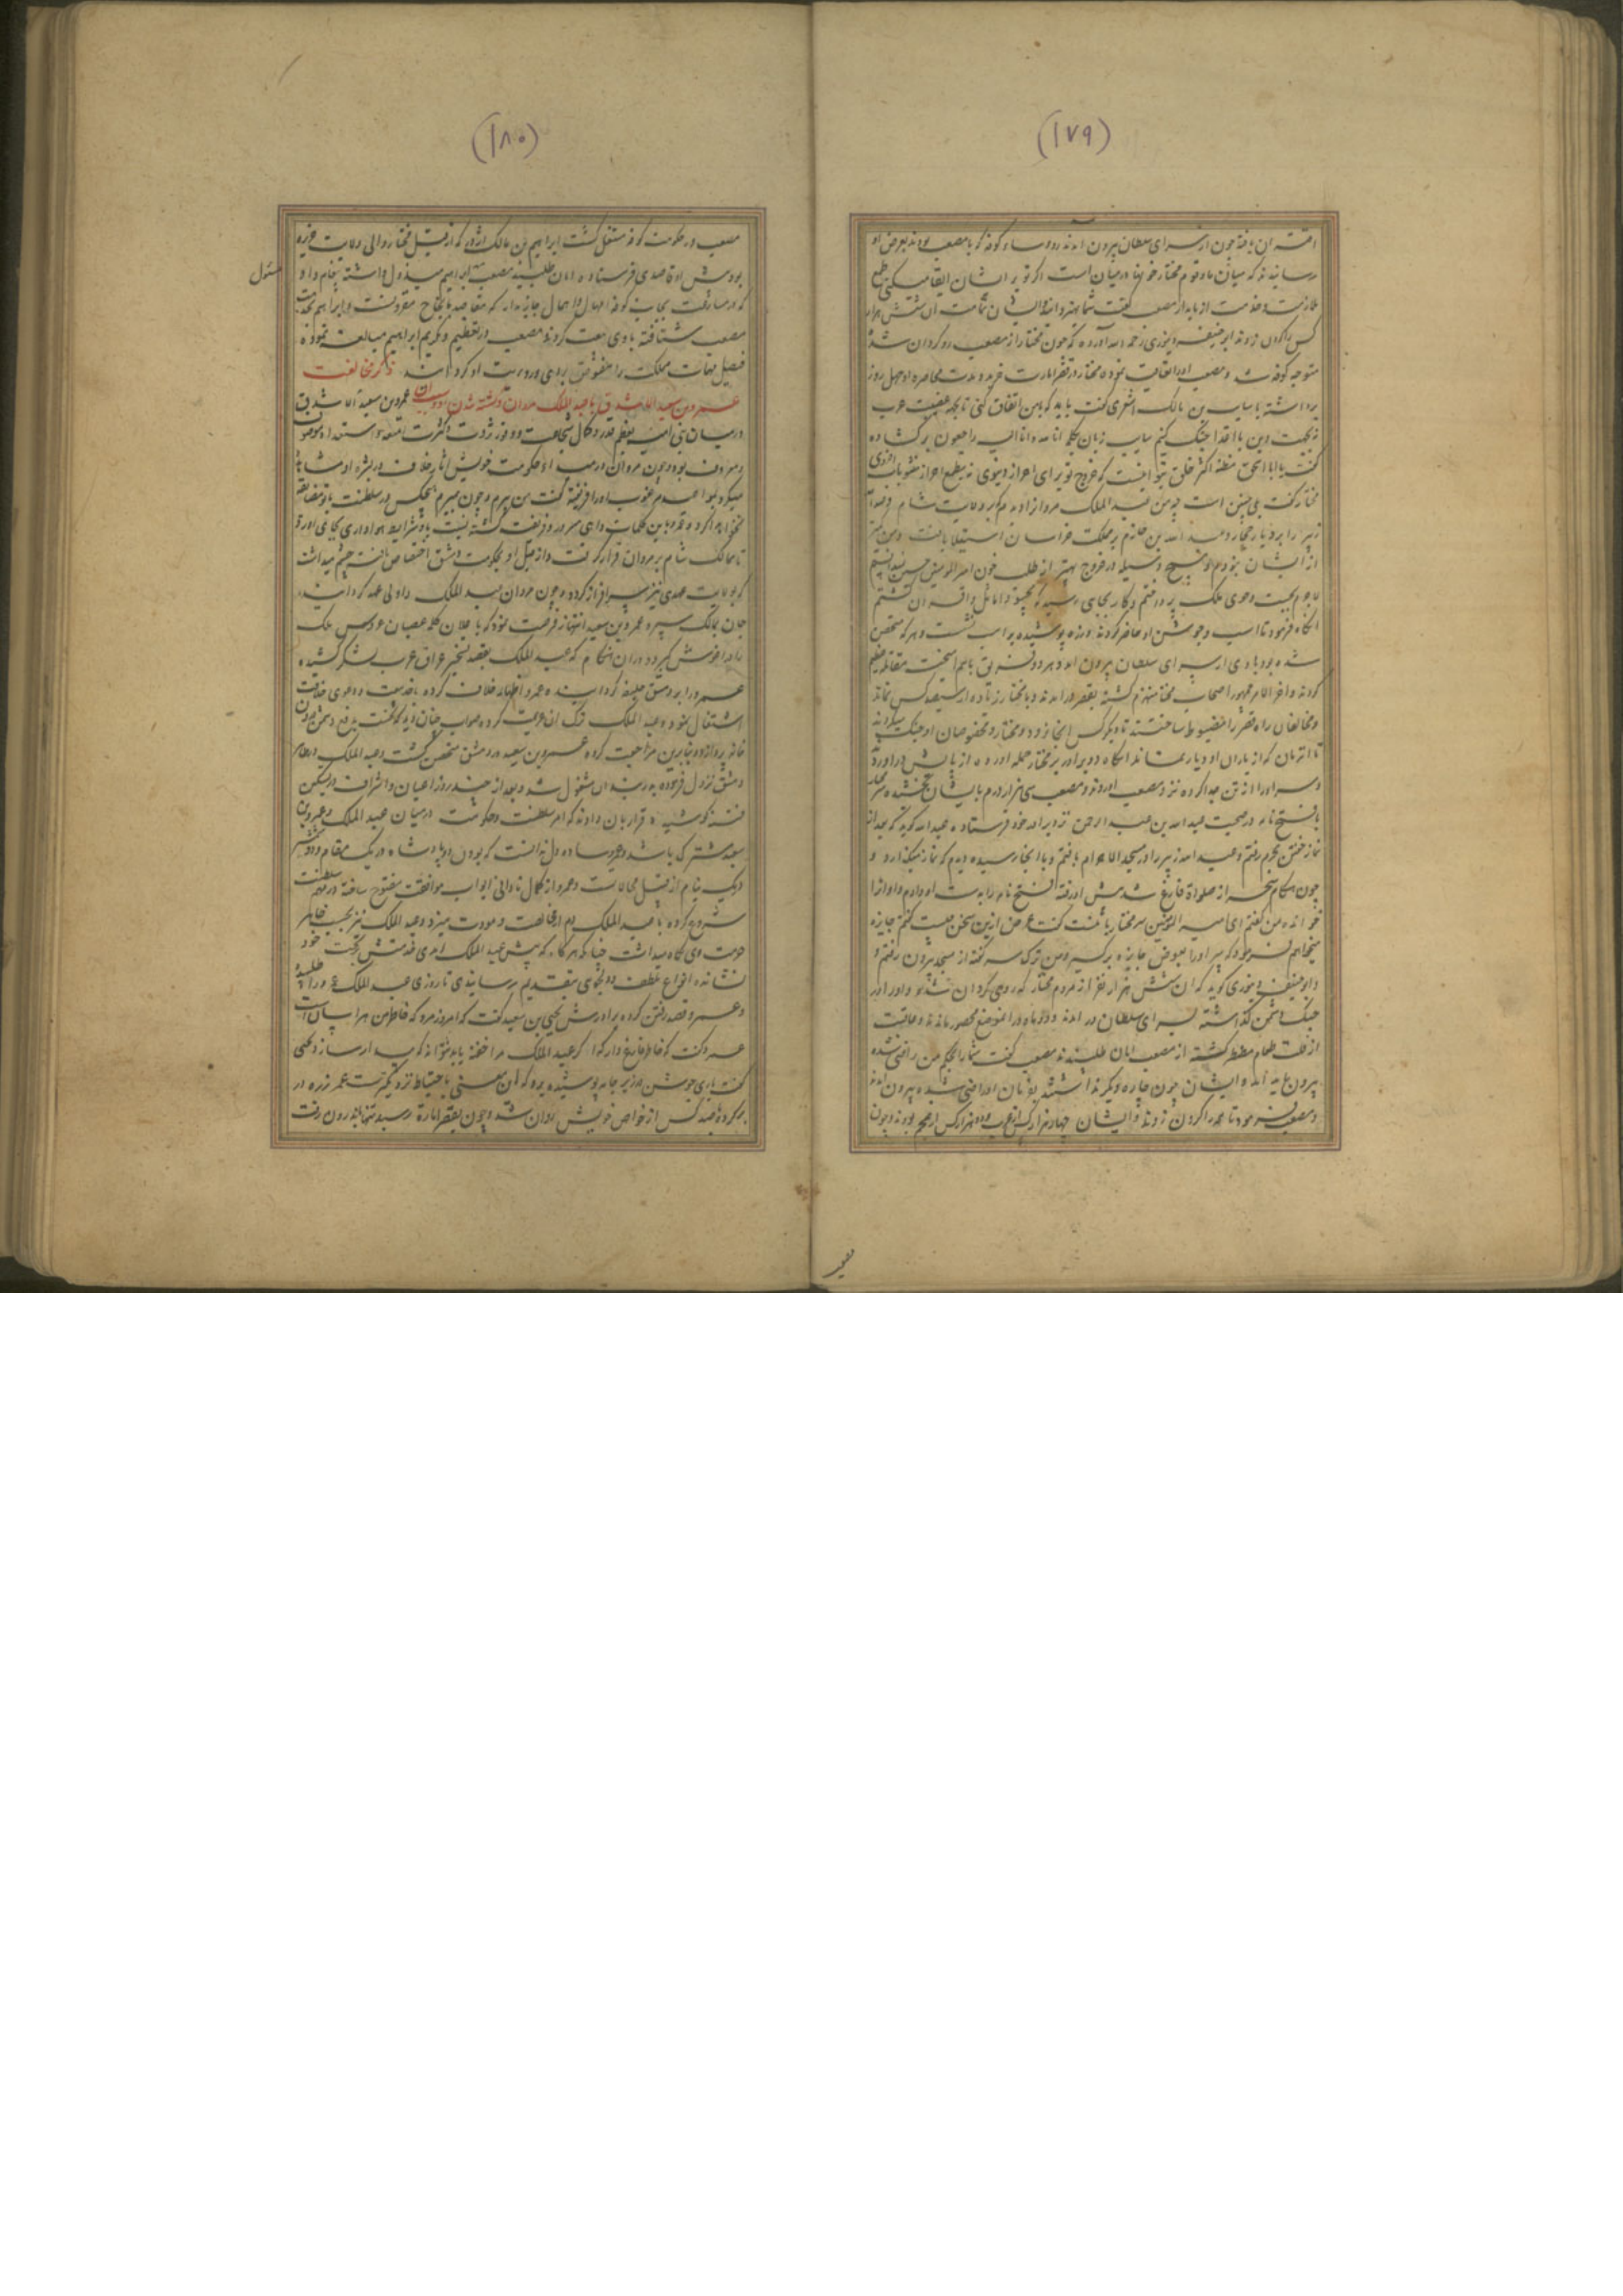 (۱۷۹)
ان یافته چون از سرای سلطان بیرون آمدند روساء کوفه که با مصعب بودند بعرض او
رسانیدند که میان ما و قوم مختار خونها در میان است اگر تو بر ایشان ابقا میکنی طمع
ملازمت و خدمت از ما مدار مصعب گفت شما بهتر دانید و ایشان تمامت آن شش هزار
کس را گردن زدند ابو حنیفه دینوری رحمه الله آورده که چون مختار از مصعب روگردان شد
متوجه کوفه شد و مصعب او را تعاقب نموده مختار در قصر امارت خزید و مدت محاصره او چهل روز
برداشته با سایب بن مالک اشعری گفت باید که با من اتفاق کنی تا بجهه حمیت عرب
نه بجهت دین با اعدا جنگ کنیم سایب زبان بکلمه انا لله و انا الیه راجعون برگشاده
گفت یا ابا اسحق مظنه اکثر خلق بتو اینست که خروج تو برای احراز دنیوی نه بطمع احراز مثوبات اخروی
مختار گفت بلی چنین است چه من عبد الملک مروان را دیدم که بر ولایت شام و عبد الله
زبیر را بر دیار حجاز و عبد الله بن خازم بر مملکت خراسان استیلا یافت و من کمتر
از ایشان نبودم و هیچ وسیله در خروج بهتر از طلب خون امیر المومنین حسین ندانستم
آنگاه فرمود تا اسب و جوشن او حاضر کردند و زره پوشیده بر اسب نشست و هر که متحصن
شده بود با وی از سرای سلطان بیرون آمد و هر دو فریق باهم آمیخت مقاتله عظیم
کردند و اخر الامر جمهور اصحاب مختار منهزم گشته بقصر در آمدند و با مختار زیاده از سیصد کس نماند
و مخالفان راه قصر را مضبوط ساختند تا دیگر کس آنجا نرود و مختار و مخصوصان او جنگ میکردند
تا آنزمان که از یاران او دیار نماند آنگاه دو برادر بر مختار حمله آورده از پایش در آوردند
و سر او را از تن جدا کرده نزد مصعب آوردند و مصعب سی هزار درم بایشان بخشیده سر مختار
با فتح نامه در صحبت عبد الله بن عبد الرحمن نزد برادر خود فرستاد عبد الله گوید که بعد از
نماز خفتن بحرم رفتم و عبد الله زبیر را در مسجد الحرام یافتم
چون هنگام سحر از صلواة فارغ شد پیش او رفته فتح نامه را بدست او دادم و او آنرا
خوانده من گفتم ای امیر المومنین سر مختار با منست گفت غرض ازین سخن چیست گفتم جایزه
میخواهم فرمود که سر او را بعوض جایزه برگیر و من ترک سر گفته از مسجد بیرون رفتم و
و ابو حنیفه دینوری گوید که آن شش هزار نفر از مردم مختار که روی گردان شدند
جنگ دشمن گذاشته بسرای سلطان در آمدند و دو ماه در آن موضع محصور ماندند و عاقبت
از قلت طعام مضطر گشته از مصعب امان طلبیدند مصعب گفت شما را بحکم من راضی شده
بیرون باید آمد و ایشان چون چاره دیگر نداشتند بفرمان او راضی شده بیرون آمدند
و مصعب فرمود تا همه را گردن زدند و ایشان چهار هزار کس از عرب و دو هزار کس از عجم بودند و چون
مصعب
(۱۸۰)
مصعب در حکومت کوفه مستقل گشت ابراهیم بن مالک اژدر که از قبل مختار والی ولایت جزیره
بود پیش او قاصدی فرستاده امان طلبید مصعب ابراهیم مبذول داشته پیغام داد
مسئول
که در مسارعت بجانب کوفه اهمال و امهال جایز ندارد که مقاصد بانجاح مقرونست و ابراهیم بخدمت
مصعب شتافته با وی بیعت کرد و مصعب در تعظیم و تکریم ابراهیم مبالغت نموده
فیصل مهمات مملکت را مفوض برای و رویت او گردانید ذکر مخالفت
عمرو بن سعید الاشدق با عبد الملک مروان و کشته شدن او عمرو بن سعید الاشدق
در میان بنی امیه بعظم قدر و کمال شجاعت و وفور ثروت و کثرت اتبعه و استعداد موصوف
و معروف بود و چون مروان در مبداء حکومت خویش آثار خلاف در بشره او مشاهده
میکرد بمواعید عرقوب او را فریفته گفت من پیرم و چون بمیرم هیچکس در سلطنت با تو مضایقه
نخواهد کرد و عمرو باین کلمات واهی مسرور و فریفته گشته نسبت باو شرایط هواداری بجای آورد
تا ممالک شام بر مروان قرار گرفت و از قبل او بحکومت دمشق اختصاص یافته چشم میداشت
که بولایت عهدی نیز سرافراز گردد و چون مروان عبد الملک را ولی عهد گردانید
جان بمالک سپرد عمرو بن سعید انتهاز فرصت نمود که با عیلان کلمه عصیان عروس ملک
را در آغوش گیرد و در آن هنگام که عبد الملک بقصد تسخیر عراق عرب لشکر کشیده
عمرو را بر دمشق خلیفه گردانیده عمرو اظهار خلاف کرده باخذ بیعت و دعوی خلافت
اشتغال نمود و عبد الملک ترک آن عزیمت کرده صواب چنان دید که نخست بدفع دشمن درون
خانه پردازد و بنابرین مراجعت کرده عمرو بن سعید در دمشق متحصن گشت و عبد الملک در ظاهر
دمشق نزول فرموده به بند ان مشغول شد و بعد از چند روز اعیان و اشراف در تسکین
فتنه کوشیده قرار بران دادند که امر سلطنت و حکومت در میان عبد الملک و عمرو بن
سعید مشترک باشد و عمرو ساده دل ندانست که بودن دو پادشاه در یک مقام و دو شمشیر
در یک نیام از قبیل محالاتست و عمرو از کمال نادانی ابواب موافقت مفتوح ساخته در مهم سلطنت
شروع کرده با عبد الملک دم از مخالصت و مودت میزد و عبد الملک نیز بحسب ظاهر
حرمت وی نگاه میداشت چنانکه هرگاه که پیش عبد الملک آمدی قدمتش بر تخت خود
نشانده انواع تلطف و دلجوی بتقدیم رسانیدی تا روزی عبد الملک عمرو را طلبیده
و عمرو قصد رفتن کرده برادرش یحیی بن سعید گفت که امروز مرو که خاطر من هراسان است
عمرو گفت که خاطر فارغ دار که اگر عبد الملک مرا خفته یابد نتواند که بیدار سازد یحیی
گفت باری جوشن در زیر جامه پوشیده برو که این معنی باحتیاط نزدیکترست عمرو زره در
بر کرده با صد کس از خواص خویش روان شد و چون بقصر امارة رسید تنها باندرون رفت